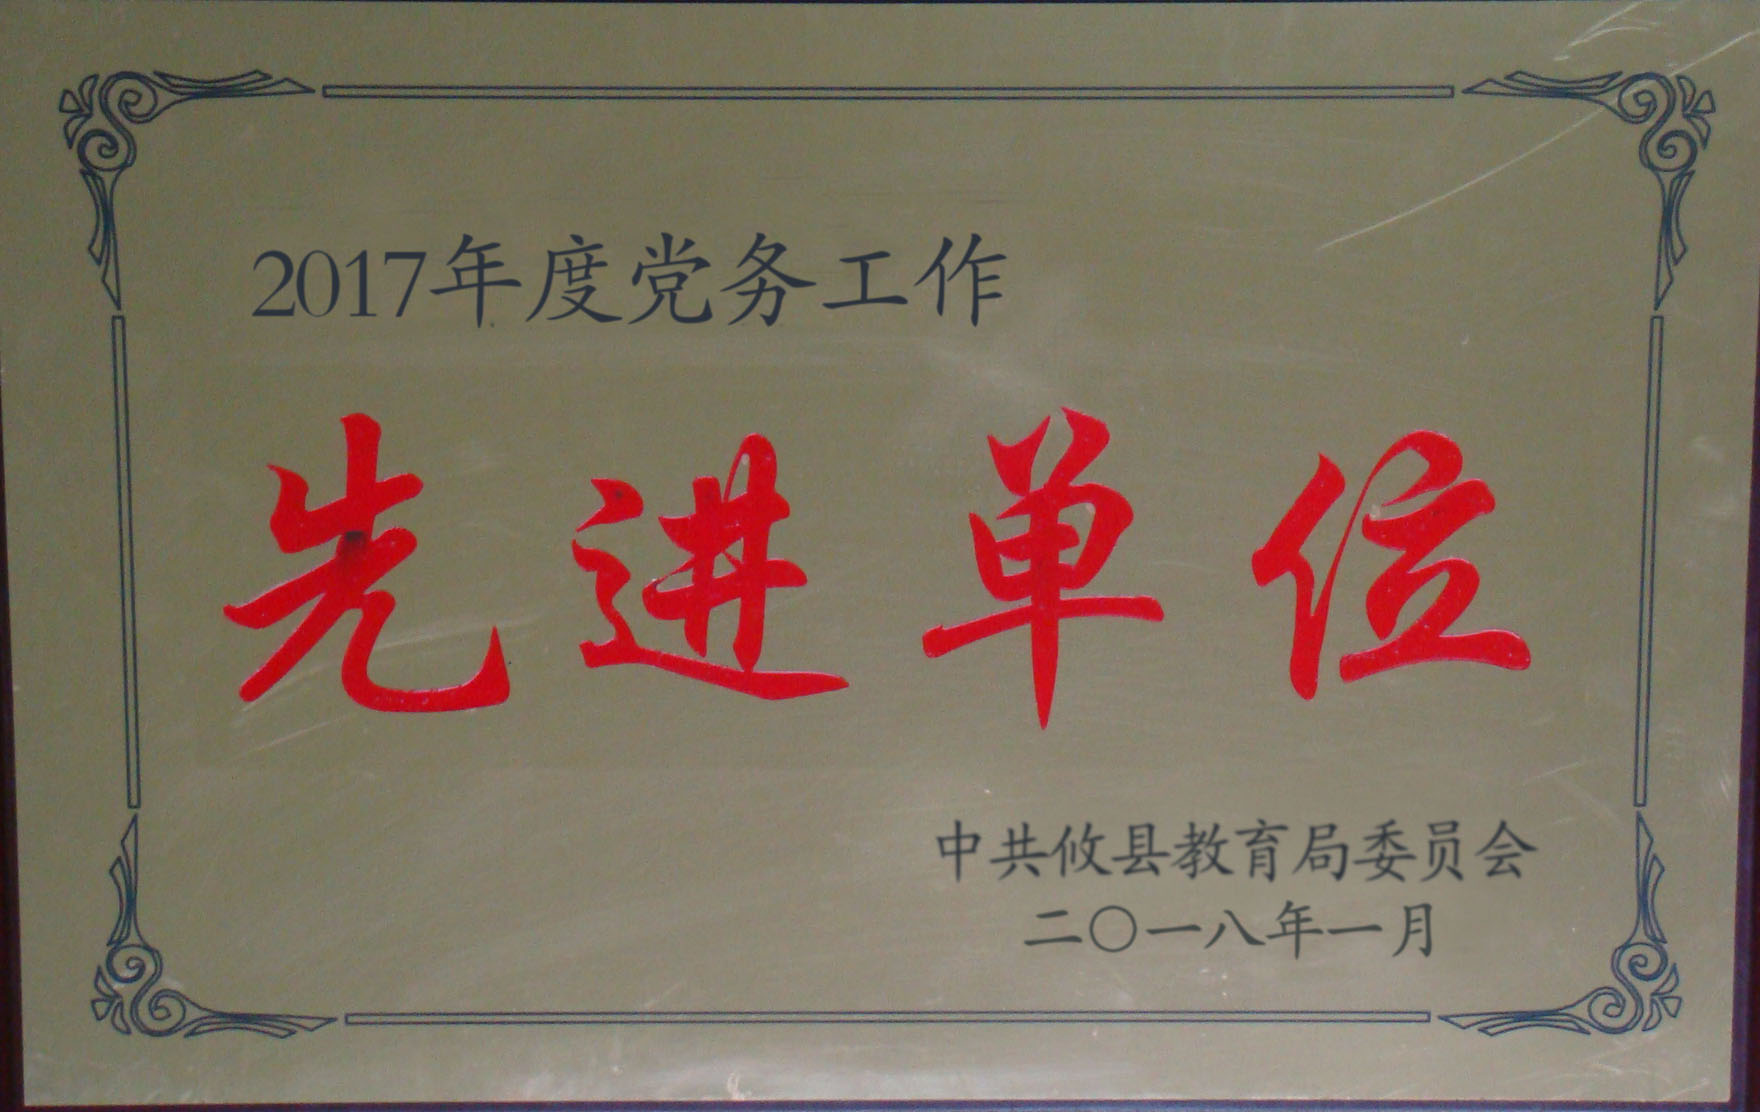 2017年度党务工作
先进单位
中共攸县教育局委员会
二〇一八年一月